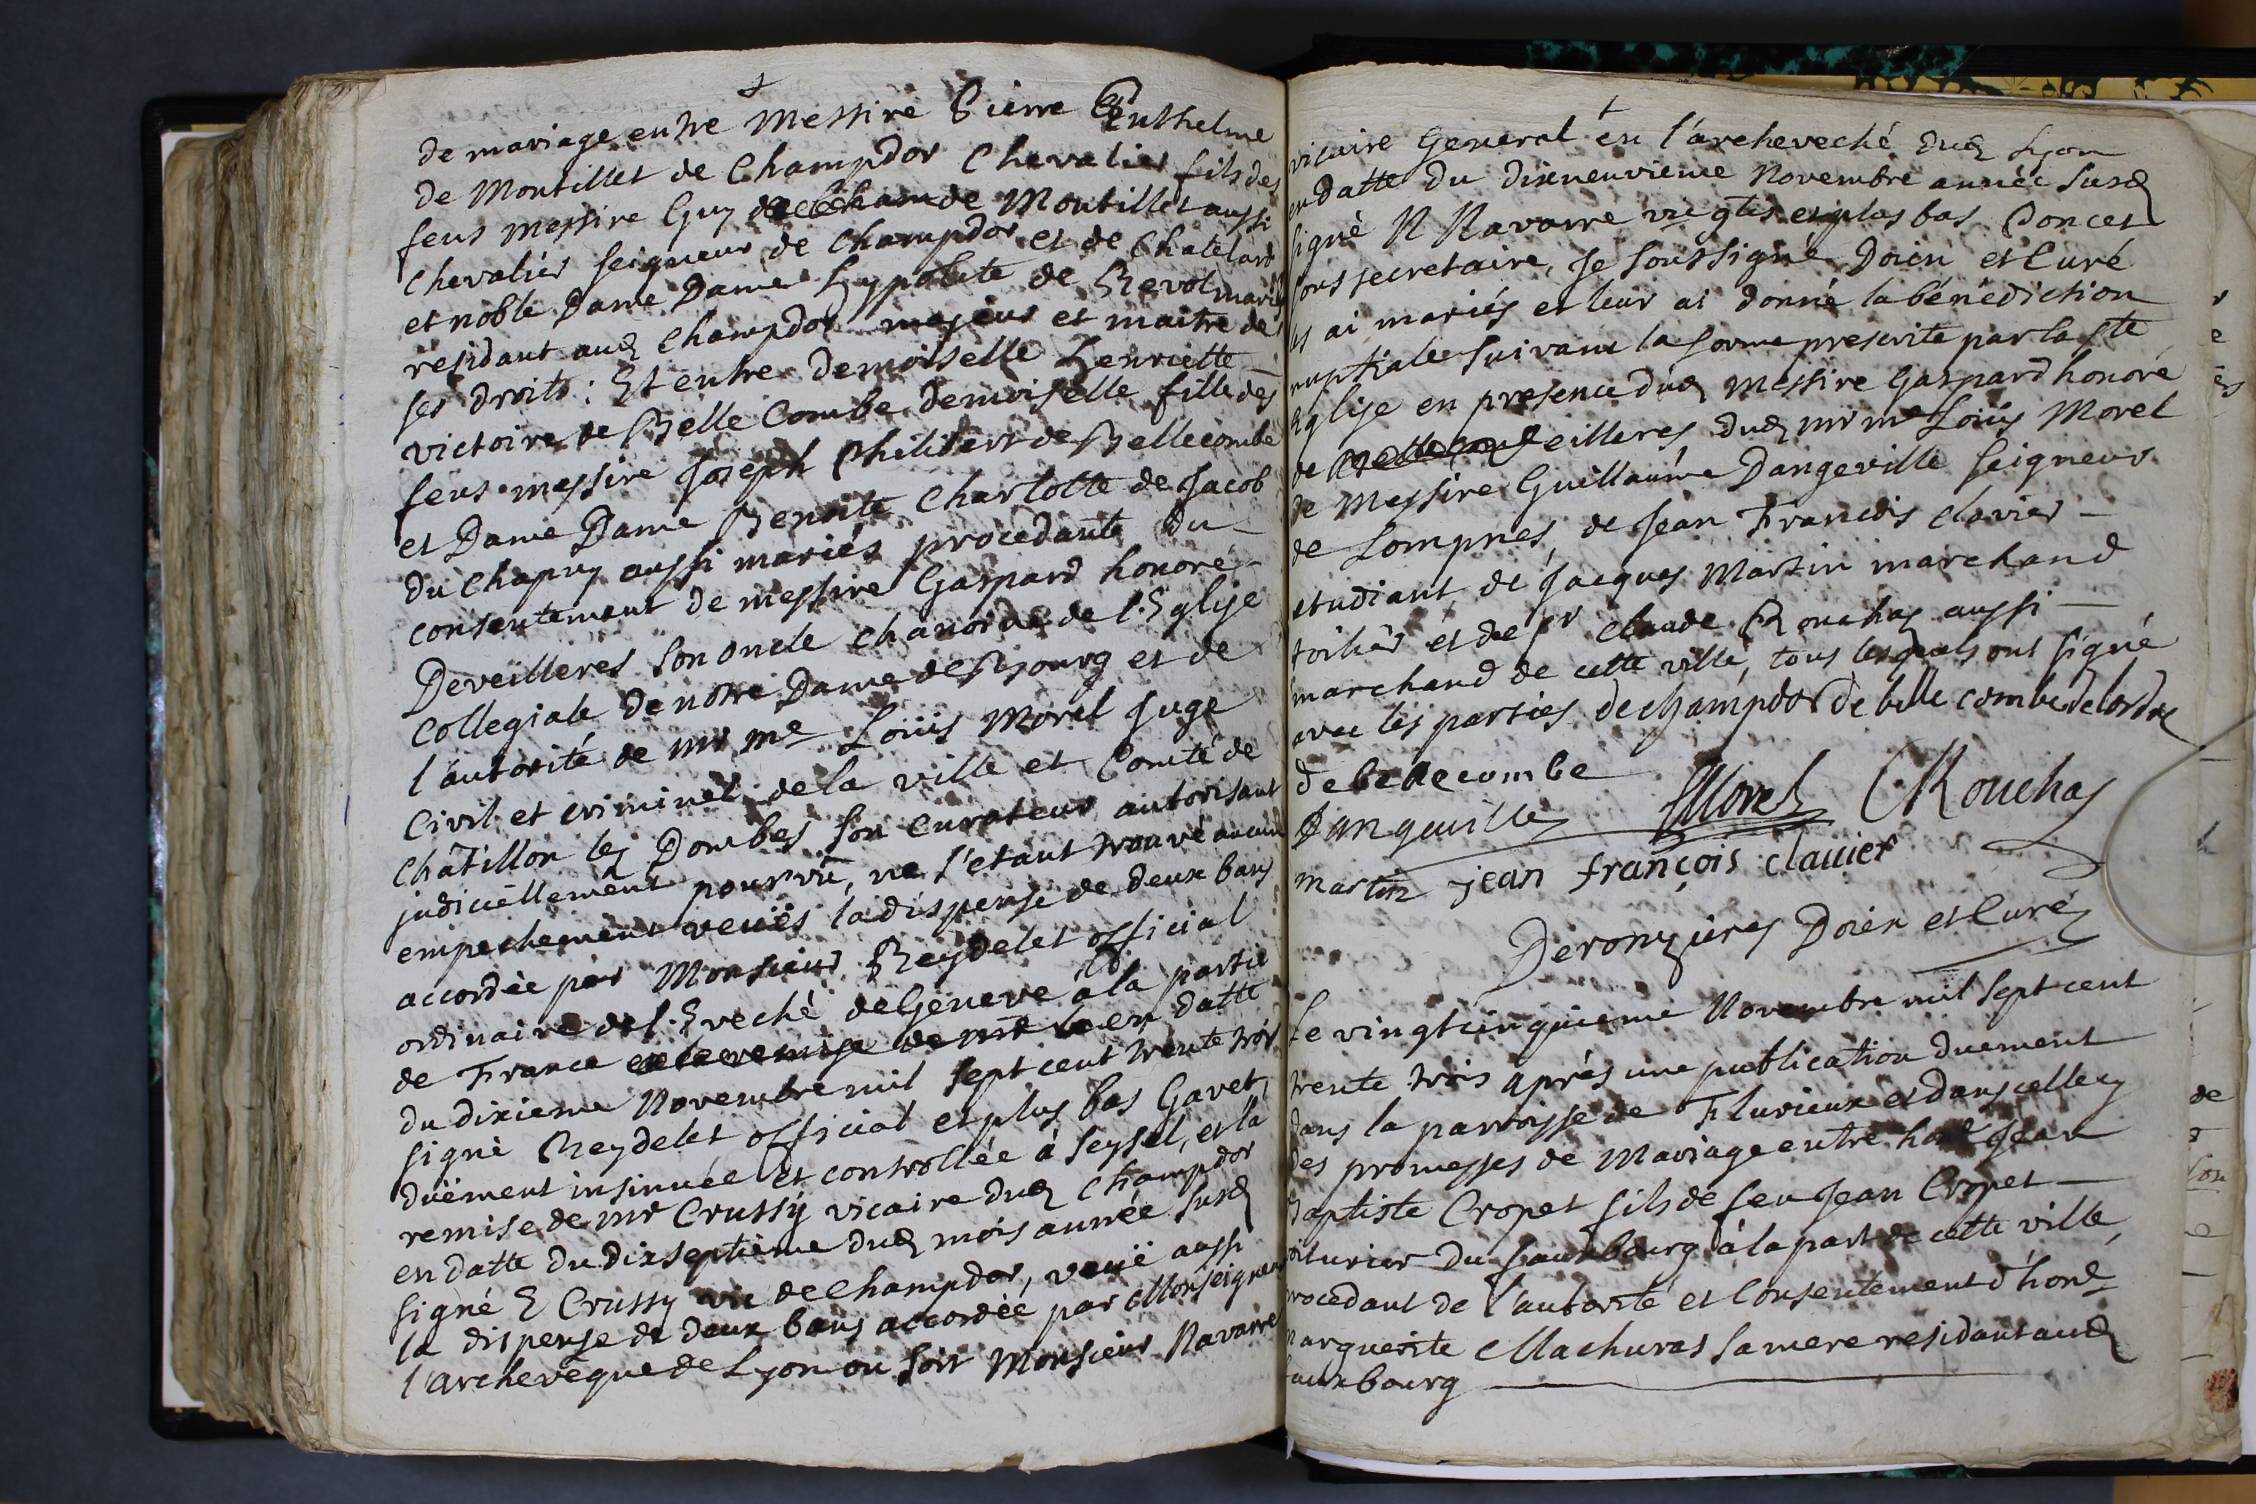 de mariage entre Messire Pierre Enthelme
de Montillet de Champdor Chevalier fils des
feus messire Guy de Montillet aussi
Chevalier seigneur de Champdor et de Chatelard
et noble Dame Dame hypolite de Revol mariés
residant aud Champdor majeur et maitre de
ses droits : Et entre demoiselle henriette
victoire de Belle Combe demoiselle fille des
feus messire Joseph Philibert de Bellecombe
et Dame Dame Benoite Charlotte de Jacob
du Chapuy aussi mariés procedante du
consentement de messire Gaspard honoré
Deveilleres son oncle chanoine de l'Eglise
Collegiale de notre Dame de Bourg et de
l'autorité de mr me Loüis Morel Juge
Civil et criminel de la ville et Comté de
Châtillon les Dombes son Curateur autorisant
judiciellement pourvû, ne s'etant trouvé aucun
empechement veuës la dispense de deux bans
accordée par Monsieur Reydelet official
ordinaire de l'Eveché de Geneve à la partie
de France en datte
du dixieme Novembre mil sept cent trente trois
signé Reydelet official et plus bas Gavet
duëment insinuée et controllée à Seyssel, et la
remise de mr Crussy vicaire dud Champdor
en datte du dixseptieme dud mois année susd
signé E Crussy vic de Champdor, veuë aussi
la dispense de deux bans accordée par Monseigneur
l'archevêque de Lyon ou soit Monsieur Navarre
vicaire General en l'archeveché dud Lyon
en datte du dixneuvieme Novembre année susd
signé N Navarre vic gl et plus bas Poncet
sous secretaire, Je soussigné Doien et Curé
les ai mariés et leur ai donné la bénédiction
nuptiale suivant la forme prescrite par la ste
Eglise en presence dud Messire Gaspard honoré
de eilleres dud mr me Loüis Morel
de Messire Guillaume Dangeville seigneur
de Lompnes, de Jean François clavier
etudiant, de Jacques Martin marchand
toilier et de sr Claude Rouchas aussi
marchand de cette ville, tous lesquels ont signé
avec les parties de champdor de belle combe delordre
de bellecombe
Dangeville Morel CRouchas
martin jean françois clauier
Deronzieres Doien et Curé
Le vingtcinquieme Novembre mil sept cent
trente trois après une publication duement
dans la parroisse de Flurieux et dans celle cy
des promesses de Mariage entre hoñe Jean
Baptiste Cropet fils de feu Jean Cropet
voiturier du fauxbourg à la part de cette ville,
procedant de l'autorité et Consentement d'hoñe
Marguerite Machuras sa mere residant aud
fauxbourg